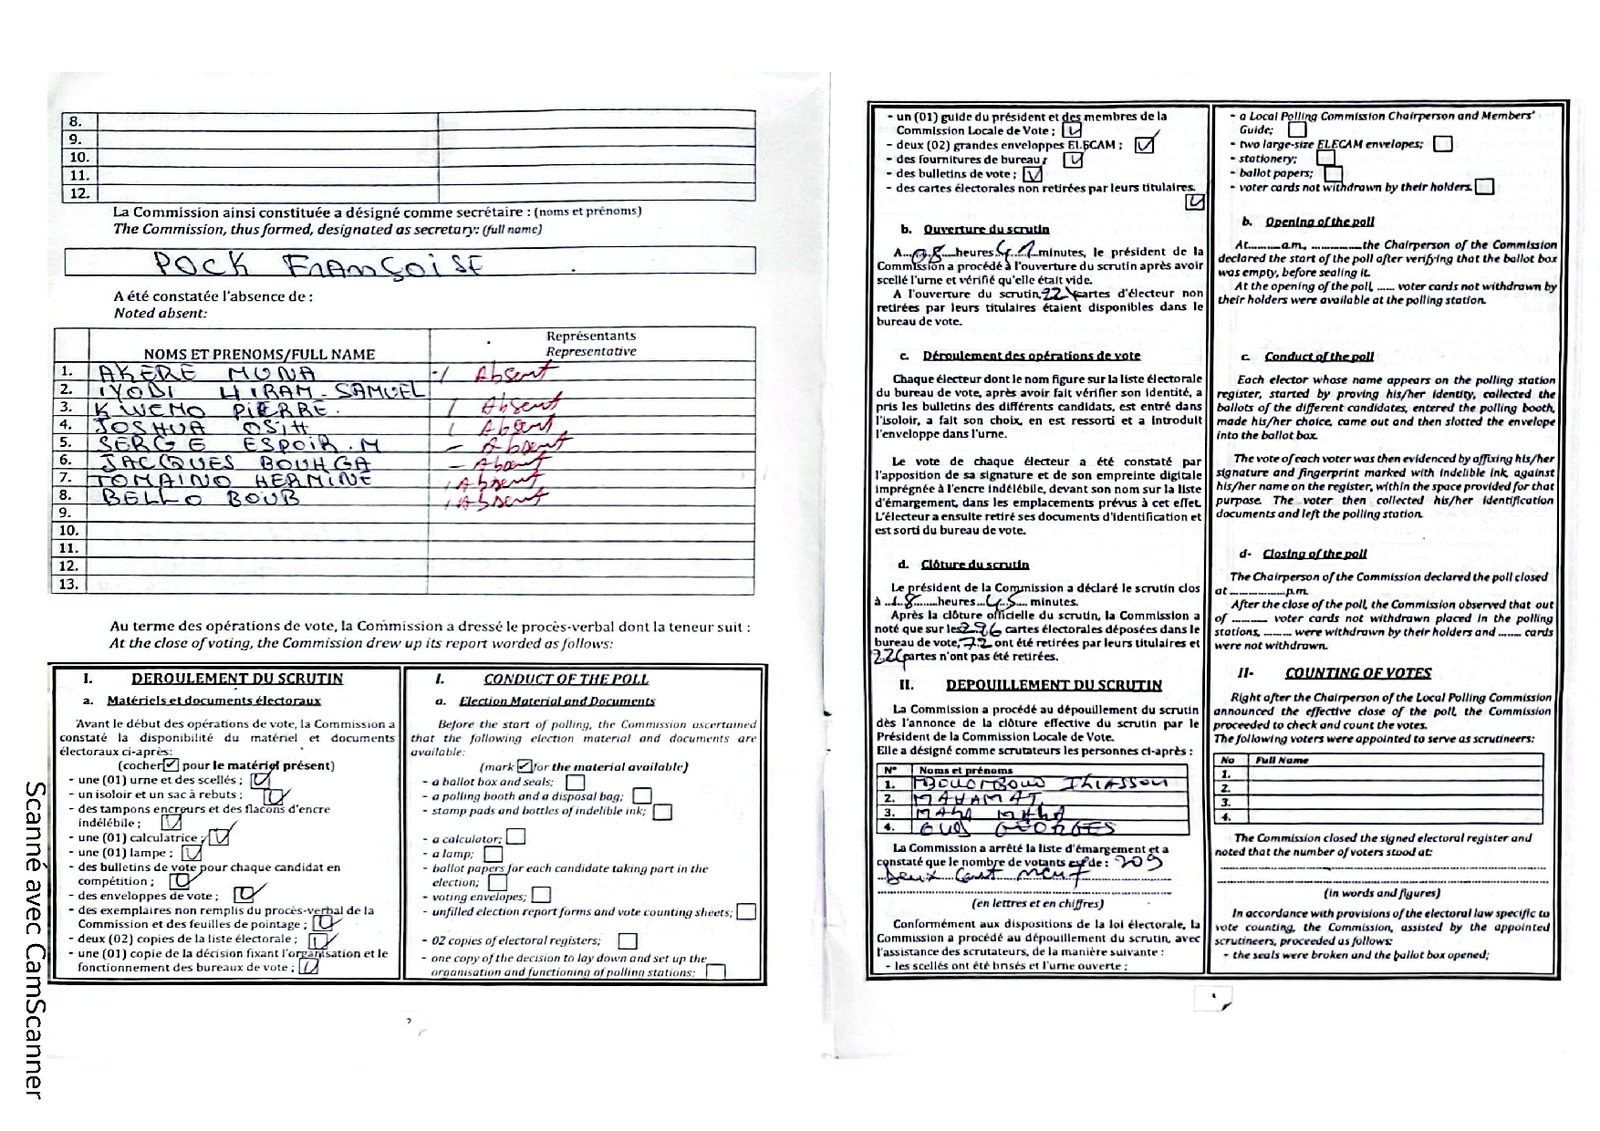 8.
9.
10.
11.
12.
La Commission ainsi constituée a désigné comme secrétaire : (noms et prénoms)
The Commission, thus formed, designated as secretary: (full name)
POCK FrANÇOISE
A été constatée l'absence de :
Noted absent:
NOMS ET PRENOMS/FULL NAME
Représentants
Representative
1. AKERE MUNA Absent
2. IYODI HIRAM SAMUEL
3. KWEMO PIERRE. Absent
4. JOSHUA OSIH Absent
5. SERGE ESPOIR.M Absent
6. JACQUES BOUHGA Absent
7. TOMAINO HERMINE Absent
8. BELLO BOUB Absent
9.
10.
11.
12.
13.
Au terme des opérations de vote, la Commission a dressé le procès-verbal dont la teneur suit :
At the close of voting, the Commission drew up its report worded as follows:
I. DEROULEMENT DU SCRUTIN
a. Matériels et documents électoraux
Avant le début des opérations de vote, la Commission a
constaté la disponibilité du matériel et documents
électoraux ci-après:
(cocher ✓ pour le matériel présent)
- une (01) urne et des scellés ;
- un isoloir et un sac à rebuts ;
- des tampons encreurs et des flacons d'encre
indélébile ;
- une (01) calculatrice ;
- une (01) lampe ;
- des bulletins de vote pour chaque candidat en
compétition ;
- des enveloppes de vote ;
- des exemplaires non remplis du procès-verbal de la
Commission et des feuilles de pointage ;
- deux (02) copies de la liste électorale ;
- une (01) copie de la décision fixant l'organisation et le
fonctionnement des bureaux de vote ;
I. CONDUCT OF THE POLL
a. Election Material and Documents
Before the start of polling, the Commission ascertained
that the following election material and documents are
available:
(mark ✓ for the material available)
- a ballot box and seals;
- a polling booth and a disposal bag;
- stamp pads and bottles of indelible ink;
- a calculator;
- a lamp;
- ballot papers for each candidate taking part in the
election;
- voting envelopes;
- unfilled election report forms and vote counting sheets;
- 02 copies of electoral registers;
- one copy of the decision to lay down and set up the
organisation and functioning of polling stations:
Scanné avec CamScanner
- un (01) guide du président et des membres de la
Commission Locale de Vote ;
- deux (02) grandes enveloppes ELECAM ;
- des fournitures de bureau ;
- des bulletins de vote ;
- des cartes électorales non retirées par leurs titulaires.
b. Ouverture du scrutin
A...08...heures...41...minutes, le président de la
Commission a procédé à l'ouverture du scrutin après avoir
scellé l'urne et vérifié qu'elle était vide.
A l'ouverture du scrutin, 224 cartes d'électeur non
retirées par leurs titulaires étaient disponibles dans le
bureau de vote.
c. Déroulement des opérations de vote
Chaque électeur dont le nom figure sur la liste électorale
du bureau de vote, après avoir fait vérifier son identité, a
pris les bulletins des différents candidats, est entré dans
l'isoloir, a fait son choix, en est ressorti et a introduit
l'enveloppe dans l'urne.
Le vote de chaque électeur a été constaté par
l'apposition de sa signature et de son empreinte digitale
imprégnée à l'encre indélébile, devant son nom sur la liste
d'émargement, dans les emplacements prévus à cet effet.
L'électeur a ensuite retiré ses documents d'identification et
est sorti du bureau de vote.
d. Clôture du scrutin
Le président de la Commission a déclaré le scrutin clos
à ...18...heures...45... minutes.
Après la clôture officielle du scrutin, la Commission a
noté que sur les 296 cartes électorales déposées dans le
bureau de vote, 72 ont été retirées par leurs titulaires et
224 cartes n'ont pas été retirées.
II. DEPOUILLEMENT DU SCRUTIN
La Commission a procédé au dépouillement du scrutin
dès l'annonce de la clôture effective du scrutin par le
Président de la Commission Locale de Vote.
Elle a désigné comme scrutateurs les personnes ci-après :
N° Noms et prénoms
1. MBOUOMBOUO ILIASSOU
2. MAHAMAT
3. MAHA MAHA
4. GUY GEORGES
La Commission a arrêté la liste d'émargement et a
constaté que le nombre de votants est de : 209
Deux Cent neuf
(en lettres et en chiffres)
Conformément aux dispositions de la loi électorale, la
Commission a procédé au dépouillement du scrutin, avec
l'assistance des scrutateurs, de la manière suivante :
- les scellés ont été brisés et l'urne ouverte ;
- a Local Polling Commission Chairperson and Members'
Guide;
- two large-size ELECAM envelopes;
- stationery;
- ballot papers;
- voter cards not withdrawn by their holders.
b. Opening of the poll
At..........a.m, ..............the Chairperson of the Commission
declared the start of the poll after verifying that the ballot box
was empty, before sealing it.
At the opening of the poll, ...... voter cards not withdrawn by
their holders were available at the polling station.
c. Conduct of the poll
Each elector whose name appears on the polling station
register, started by proving his/her identity, collected the
ballots of the different candidates, entered the polling booth,
made his/her choice, came out and then slotted the envelope
into the ballot box.
The vote of each voter was then evidenced by affixing his/her
signature and fingerprint marked with indelible ink, against
his/her name on the register, within the space provided for that
purpose. The voter then collected his/her identification
documents and left the polling station.
d- Closing of the poll
The Chairperson of the Commission declared the poll closed
at ..................p.m.
After the close of the poll, the Commission observed that out
of ........... voter cards not withdrawn placed in the polling
stations, ......... were withdrawn by their holders and ....... cards
were not withdrawn.
II- COUNTING OF VOTES
Right after the Chairperson of the Local Polling Commission
announced the effective close of the poll, the Commission
proceeded to check and count the votes.
The following voters were appointed to serve as scrutineers:
No Full Name
1.
2.
3.
4.
The Commission closed the signed electoral register and
noted that the number of voters stood at:
(in words and figures)
In accordance with provisions of the electoral law specific to
vote counting, the Commission, assisted by the appointed
scrutineers, proceeded as follows:
- the seals were broken and the ballot box opened;